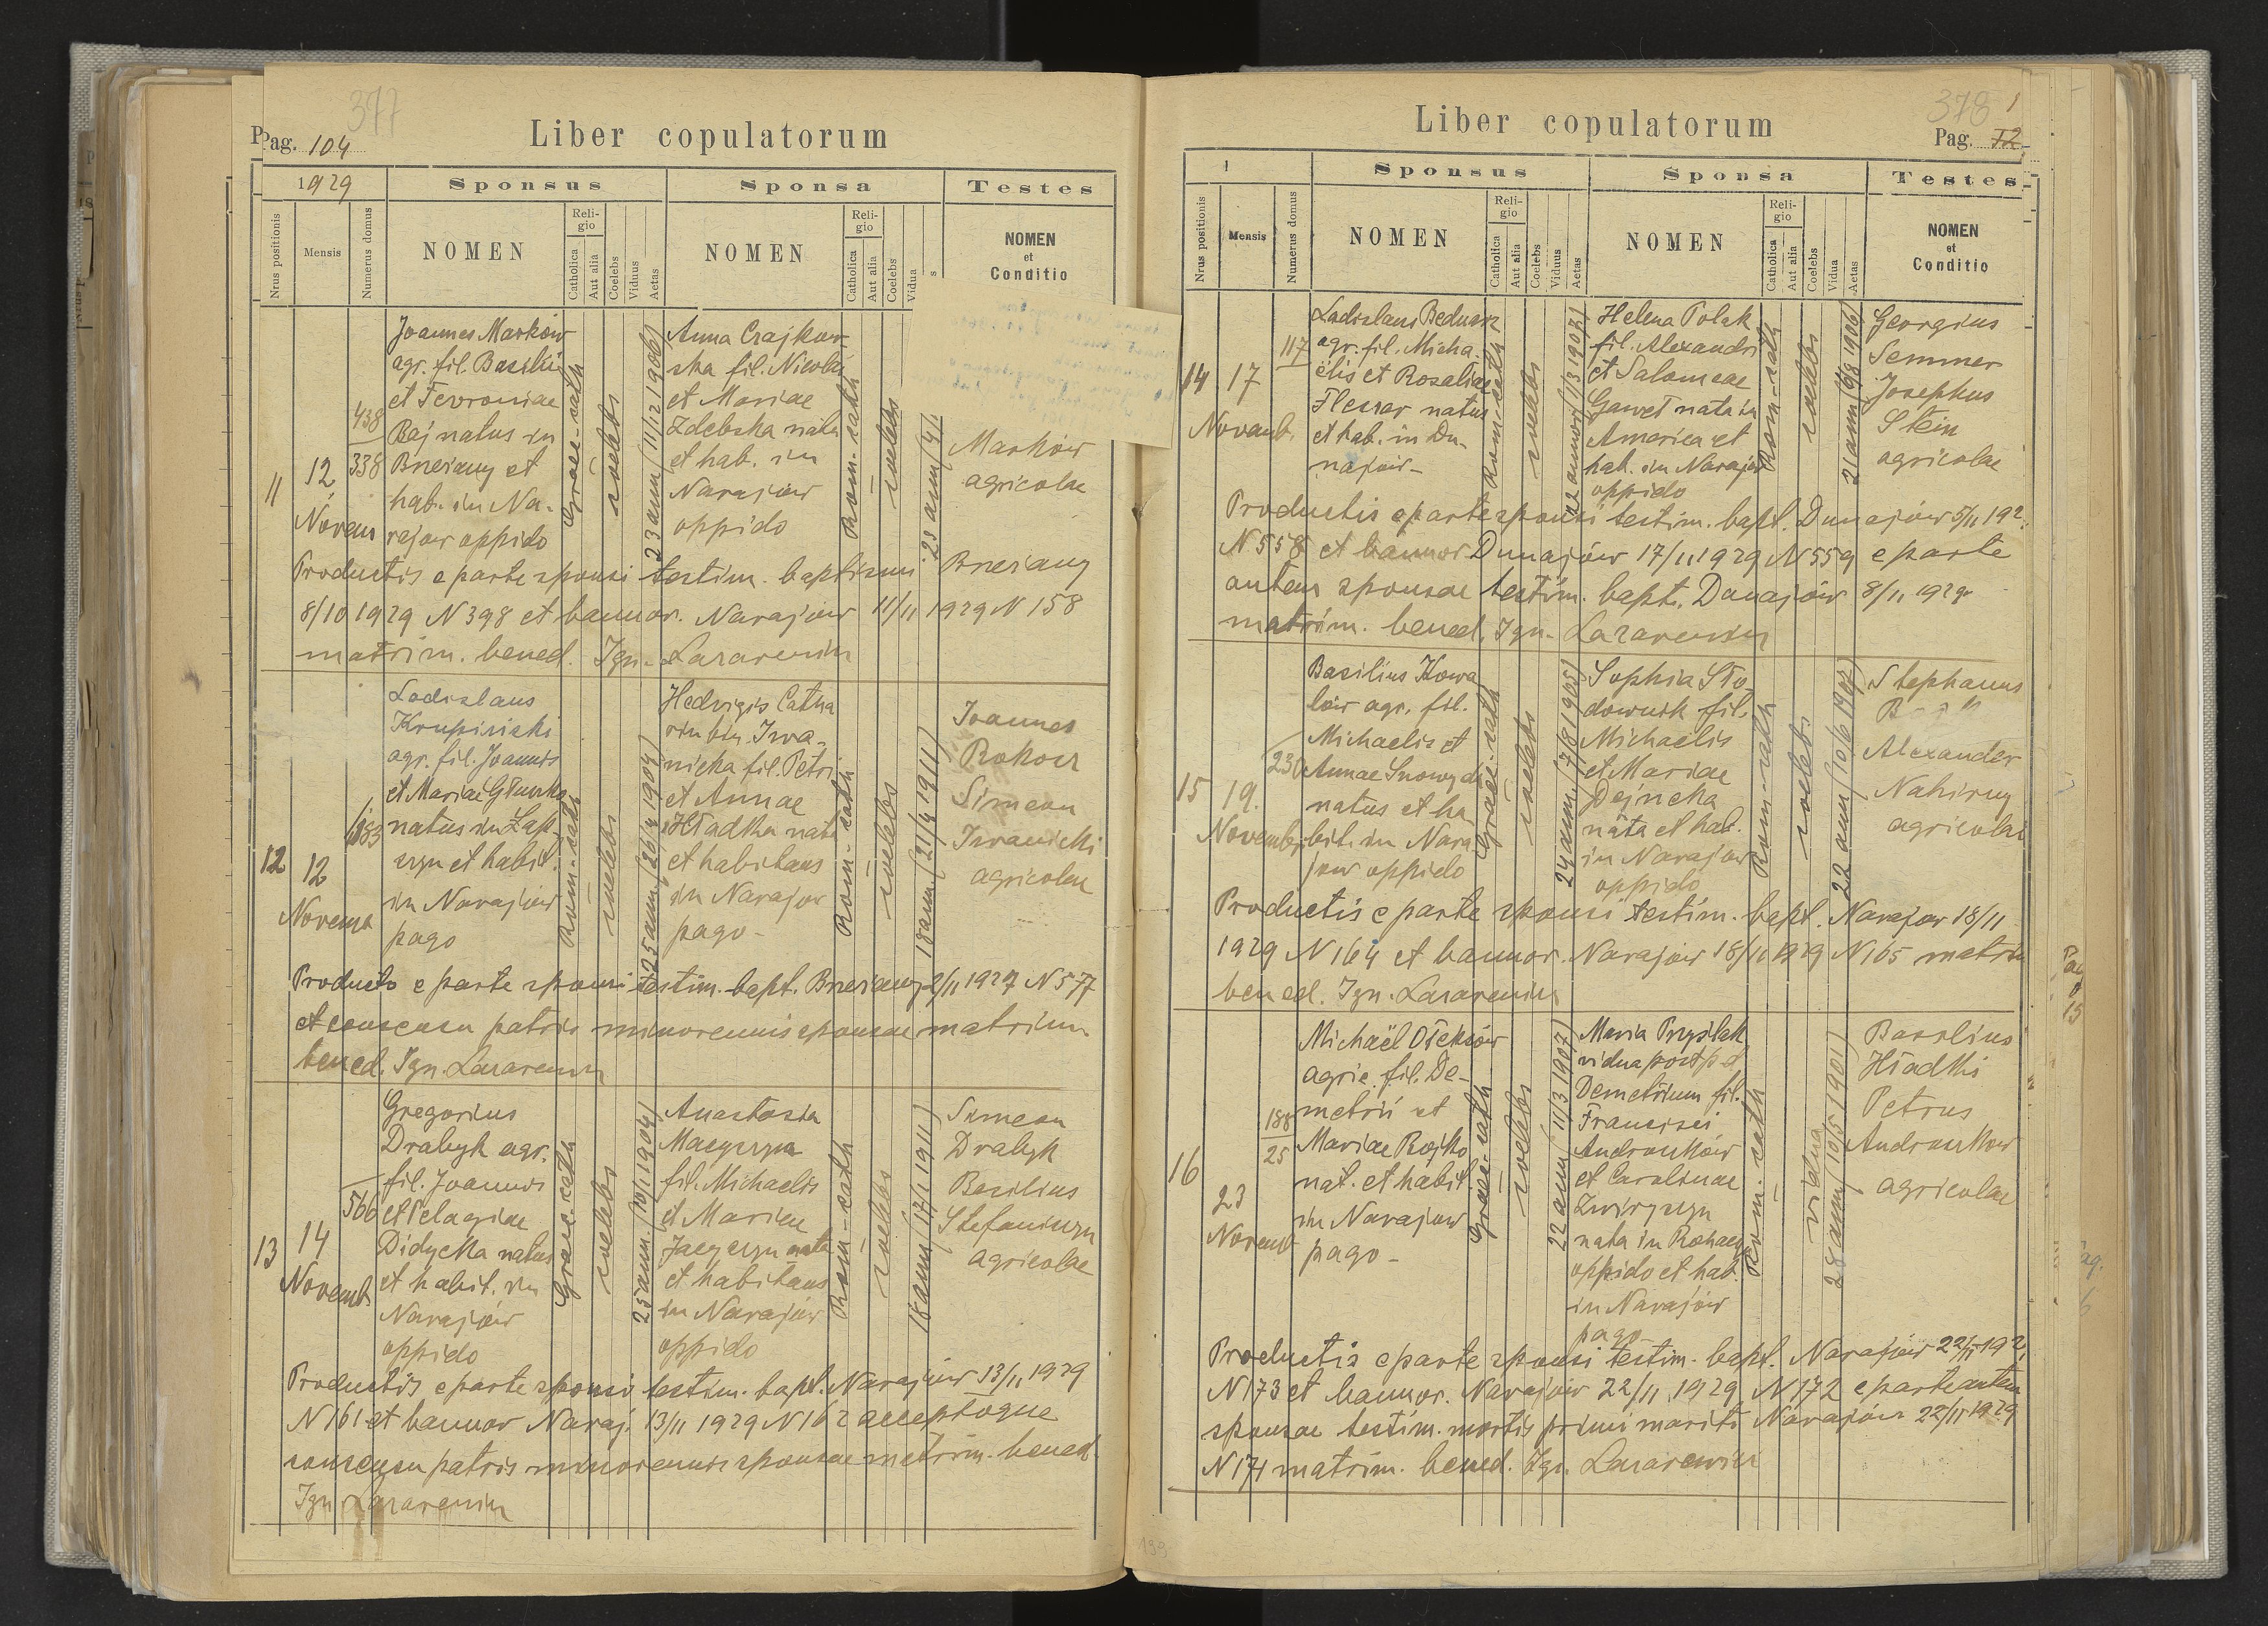 377
Pag. 104
Liber copulatorum
1929
Sponsus
Sponsa
Testes
Nrus positionis
Mensis
Numerus domus
NOMEN
Religio
Catholica
Aut alia
Coelebs
Viduus
Aetas
NOMEN
Religio
Catholica
Aut alia
Coelebs
Vidua
NOMEN
et
Conditio
11
12
Novem
438
338
Joannes Marków
agr. fil. Basilii
et Fevroniae
Baj natus in
Brzeżany et
hab. in Na-
rajow oppido
Graec-cath
coelebs
23 ann (11/12 1906)
Anna Czajkow
ska fil. Nicolai
et Mariae
Zdebska nata
et hab. in
Narajów
oppido
Rom-cath
coelebs
Marków
agricolae
Productis e parte sponsi testim. baptismi Brzeżany
8/10 1929 N 398 et bannor. Narajow 11/11 1929 N 158
matrim. bened. Ign. Lazarewicz
12
12
Ladislaus
Krupiński
agr. fil. Joannis
natus in
et habit.
in Narajów
pago
Rom-cath
coelebs
25 ann (26/4 1904)
Hedvigis Catha
Iwa-
nicka fil. Petri
et Annae
Hładka nata
et habitans
in Narajow
pago-
Rom-cath
coelebs
18 ann (21/4 1911)
Joannes
Rokosz
Simeon
Iwanicki
agricolae
Producto e parte sponsi testim. bapt. Brzeżany 2/11 1929 N 577
et consensu patris minorennis sponsae matrim
bened. Ign. Lazarewicz
13
14
Novemb
566
Gregorius
Drabyk agr.
fil. Joannis
et Pelagiae
Didycka natus
et habit. in
Narajów
oppido
Graec-cath
coelebs
25 ann. (10/1 1904)
Anastasia
Maczyszyn
fil. Michaelis
et Mariae
Jaczyszyn nata
et habitans
in Narajów
oppido
Rom-cath
coelebs
18 ann (17/1 1911)
Simeon
Drabyk
Basilius
Stefaniszyn
agricolae
Productis e parte sponsi testim. bapt. Narajów 13/11 1929
N 161 et bannor Naraj. 13/11 1929 N 162 acceptoque
consensu patris minorennis sponsae matrim. bened.
Ign Lazarewicz
378
1
Liber copulatorum
Pag. 72
Sponsus
Sponsa
Testes
Nrus positionis
Mensis
Numerus domus
NOMEN
Religio
Catholica
Aut alia
Coelebs
Viduus
Aetas
NOMEN
Religio
Catholica
Aut alia
Coelebs
Vidua
Aetas
NOMEN
et
Conditio
14
17
Novemb.
117
Ladislaus Bednarz
agr. fil. Micha-
ëlis et Rosaliae
Flessar natus
et hab. in Du-
najów-
Rom-cath
coelebs
22 annor (1/3 1907)
Helena Polak
fil. Alexandri
et Salomeae
Gaweł nata in
America et
hab. in Narajów
oppido
Rom-cath
coelebs
Georgius
Semmer
Josephus
Stein
agricolae
Productis e parte sponsi testim. bapt. Dunajów 5/11 192
N 558 et bannor Dunajów 17/11 1929 N 559 e parte
autem sponsae testim. bapt. Dunajów 8/11 1929
matrim. bened. Ign. Lazarewicz
15
19.
Novemb
230
Basilius Kowa
lów agr. fil.
Michaelis et
Annae
natus et ha
bit. in Nara
jow oppido
Graec-cath
coelebs
24 ann. (7/8 1905)
Sophia Sło
downik fil.
Michaëlis
et Mariae
Dejneka
nata et hab.
in Narajow
oppido
Rom-cath
coelebs
Stephanus
Alexander
Nahirny
agricolae
Productis e parte sponsi testim. bapt. Narajow 18/11
1929 N 164 et bannor. Narajów 18/11 1929 N 165 matrim
bened. Ign. Lazarewicz
16
23
Novemb
188
25
Michaël Ołeksów
agric. fil. De-
metrii et
Mariae Bojko
nat. et habit.
in Narajow
pago-
Graec-cath
coelebs
22 ann (11/3 1907)
Maria Przyślak
vidua post p.d.
Demetrium fil.
Francisci
Andruszków
et Carolinae
nata in Rohaczyn
oppido et hab.
in Narajów
pago
Rom-cath
vidua
28 ann (10/5 1901)
Basilius
Hładki
Petrus
Andruszkow
agricolae
Productis e parte sponsi testim. bapt. Narajów 22/11 192
N 173 et bannor. Narajów 22/11 1929 N 172 e parte autem
sponsae testim. mortis primi mariti Narajów 22/11 1929
N 171 matrim. bened. Ign. Lazarewicz